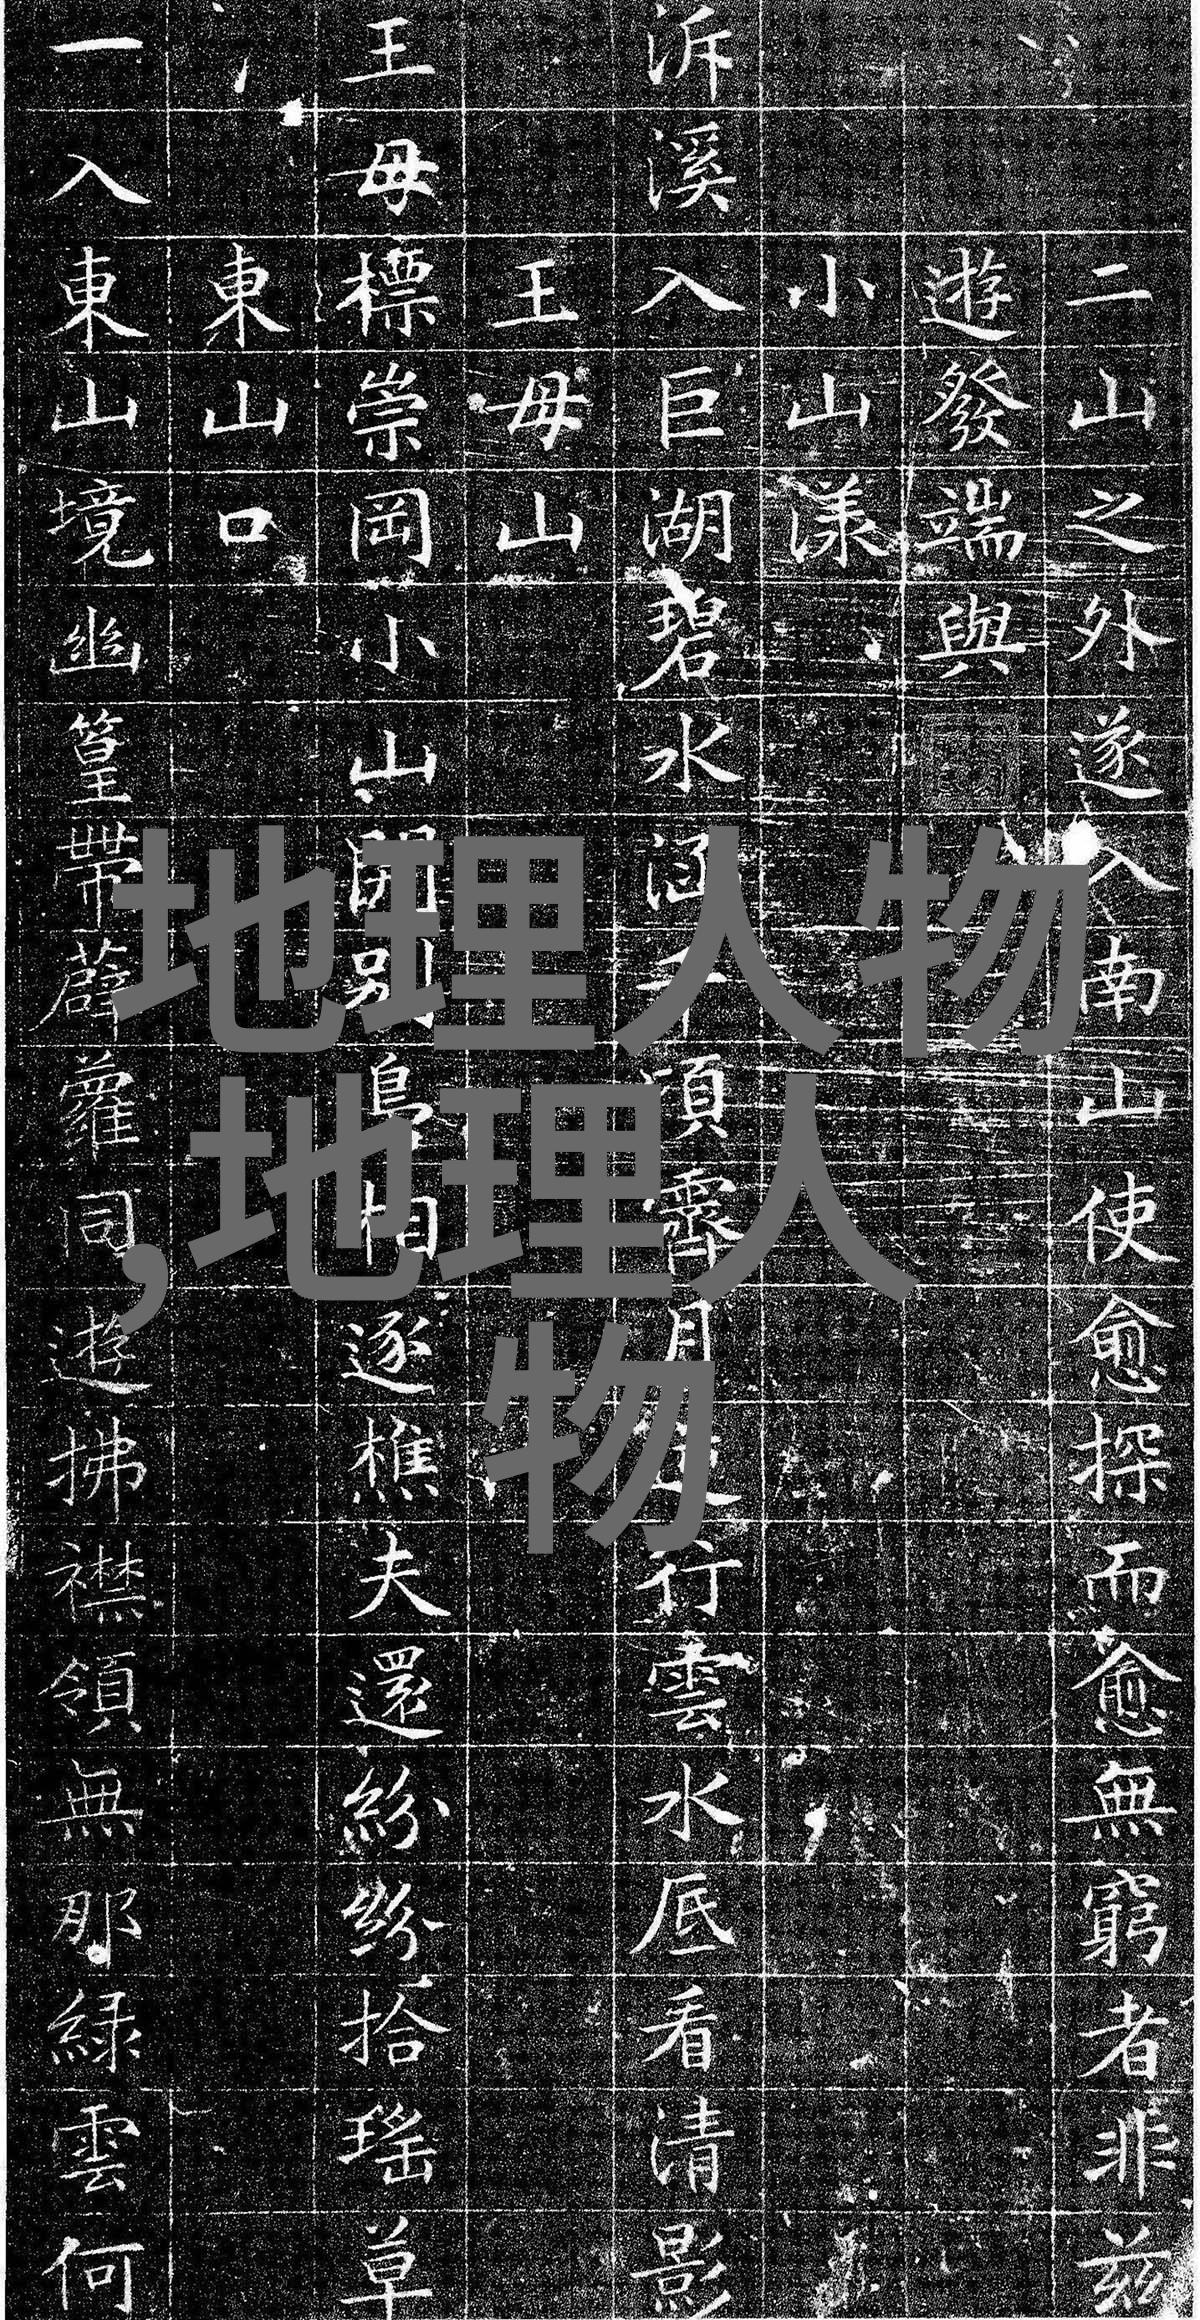 二山之外遂入南山使愈探而愈無窮者非茲
遊發端與
小山漾
泝溪入巨湖碧水涵千頃霽月行雲水底看清影
王母山
王母標崇岡小山開別島相逐樵夫還紛紛拾瑤草
東山口
一入東山境幽篁帶薜蘿同遊拂襟領無那綠雲何
地理人物
,地理人
物